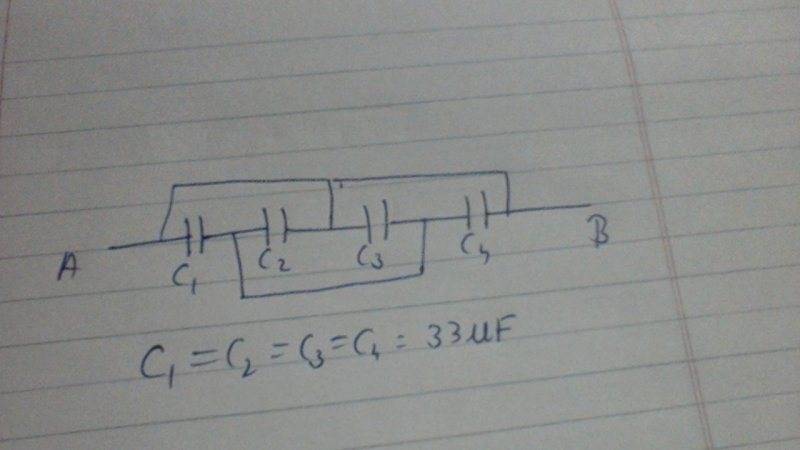 A
C1
C2
C3
C4
B
C1 = C2 = C3 = C4 = 33 uF